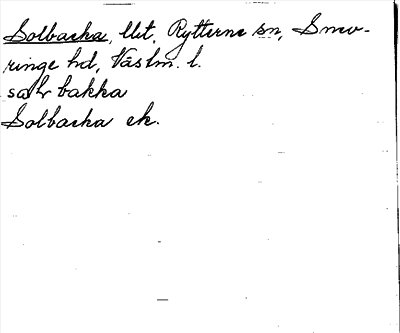 Solbacka, llt, Rytterne sn, Snev-
ringe hd, Västm. l.
bakka
Solbacka ek.